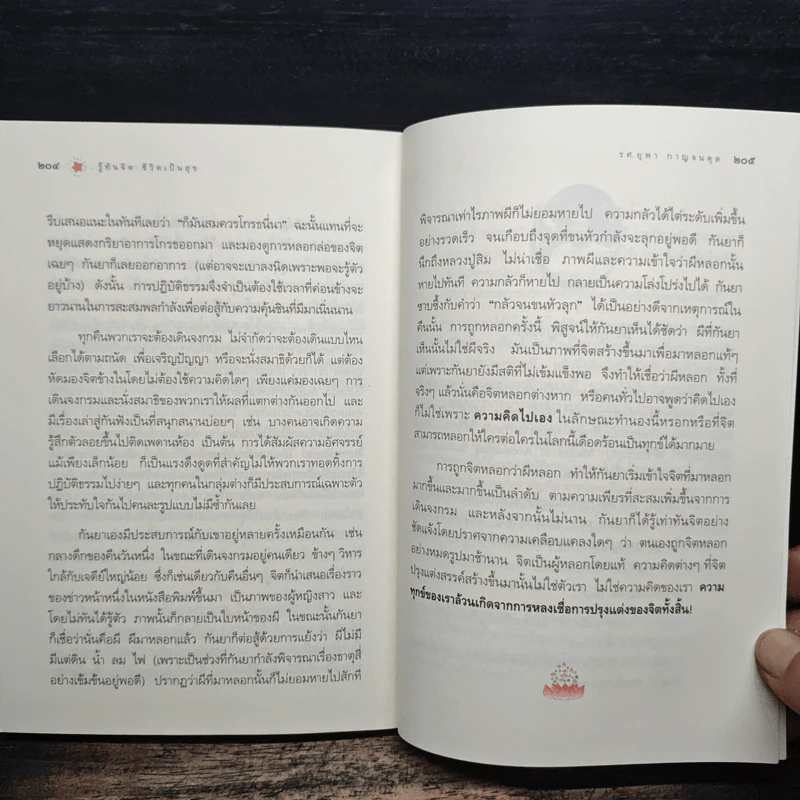 ๒๐๔ รู้ทันจิต ชีวิตเป็นสุข
รีบเสนอแนะในทันทีเลยว่า “ก็มันสมควรโกรธนี่นา” ฉะนั้นแทนที่จะ
หยุดแสดงกริยาอาการโกรธออกมา และมองดูการหลอกล่อของจิต
เฉยๆ กันยาก็เลยออกอาการ (แต่อาจจะเบาลงนิดเพราะพอจะรู้ตัว
อยู่บ้าง) ดังนั้น การปฏิบัติธรรมจึงจำเป็นต้องใช้เวลาที่ค่อนข้างจะ
ยาวนานในการสะสมพลกำลังเพื่อต่อสู้กับความคุ้นชินที่มีมาเนิ่นนาน
ทุกคืนพวกเราจะต้องเดินจงกรม ไม่จำกัดว่าจะต้องเดินแบบไหน
เลือกได้ตามถนัด เพื่อเจริญปัญญา หรือจะนั่งสมาธิด้วยก็ได้ แต่ต้อง
หัดมองจิตข้างในโดยไม่ต้องใช้ความคิดใดๆ เพียงแค่มองเฉยๆ การ
เดินจงกรมและนั่งสมาธิของพวกเราให้ผลที่แตกต่างกันออกไป และ
มีเรื่องเล่าสู่กันฟังเป็นที่สนุกสนานบ่อยๆ เช่น บางคนอาจเกิดความ
รู้สึกตัวลอยขึ้นไปติดเพดานห้อง เป็นต้น การได้สัมผัสความอัศจรรย์
แม้เพียงเล็กน้อย ก็เป็นแรงดึงดูดที่สำคัญไม่ให้พวกเราทอดทิ้งการ
ปฏิบัติธรรมไปง่ายๆ และทุกคนในกลุ่มต่างก็มีประสบการณ์เฉพาะตัว
ให้ประทับใจกันไปคนละรูปแบบไม่มีซ้ำกันเลย
กันยาเองมีประสบการณ์กับเขาอยู่หลายครั้งเหมือนกัน เช่น
กลางดึกของคืนวันหนึ่ง ในขณะที่เดินจงกรมอยู่คนเดียว ข้างๆ วิหาร
ใกล้กับเจดีย์ใหญ่น้อย ซึ่งก็เช่นเดียวกับคืนอื่นๆ จิตก็นำเสนอเรื่องราว
ของข่าวหน้าหนึ่งในหนังสือพิมพ์ขึ้นมา เป็นภาพของผู้หญิงสาว และ
โดยไม่ทันได้รู้ตัว ภาพนั้นก็กลายเป็นใบหน้าของผี ในขณะนั้นกันยา
ก็เชื่อว่านั่นคือผี ผีมาหลอกแล้ว กันยาก็ต่อสู้ด้วยการแย้งว่า ผีไม่มี
มีแต่ดิน น้ำ ลม ไฟ (เพราะเป็นช่วงที่กันยากำลังพิจารณาเรื่องธาตุสี่
อย่างเข้มข้นอยู่พอดี) ปรากฏว่าผีที่มาหลอกนั้นก็ไม่ยอมหายไปสักที
รศ.ยุพา กาญจนดุล ๒๐๕
พิจารณาเท่าไรภาพผีก็ไม่ยอมหายไป ความกลัวได้ไต่ระดับเพิ่มขึ้น
อย่างรวดเร็ว จนเกือบถึงจุดที่ขนหัวกำลังจะลุกอยู่พอดี กันยาก็
นึกถึงหลวงปู่สิม ไม่น่าเชื่อ ภาพผีและความเข้าใจว่าผีหลอกนั้น
หายไปทันที ความกลัวก็หายไป กลายเป็นความโล่งโปร่งไปได้ กันยา
ซาบซึ้งกับคำว่า “กลัวจนขนหัวลุก” ได้เป็นอย่างดีจากเหตุการณ์ใน
คืนนั้น การถูกหลอกครั้งนี้ พิสูจน์ให้กันยาเห็นได้ชัดว่า ผีที่กันยา
เห็นนั้นไม่ใช่ผีจริง มันเป็นภาพที่จิตสร้างขึ้นมาเพื่อมาหลอกแท้ๆ
แต่เพราะกันยายังมีสติที่ไม่เข้มแข็งพอ จึงทำให้เชื่อว่าผีหลอก ทั้งที่
จริงๆ แล้วนั่นคือจิตหลอกต่างหาก หรือคนทั่วไปอาจพูดว่าคิดไปเอง
ก็ไม่ใช่เพราะ ความคิดไปเอง ในลักษณะทำนองนี้หรอกหรือที่จิต
สามารถหลอกให้ใครต่อใครในโลกนี้เดือดร้อนเป็นทุกข์ได้มากมาย
การถูกจิตหลอกว่าผีหลอก ทำให้กันยาเริ่มเข้าใจจิตที่มาหลอก
มากขึ้นและมากขึ้นเป็นลำดับ ตามความเพียรที่สะสมเพิ่มขึ้นจากการ
เดินจงกรม และหลังจากนั้นไม่นาน กันยาก็ได้รู้เท่าทันจิตอย่าง
ชัดแจ้งโดยปราศจากความเคลือบแคลงใดๆ ว่า ตนเองถูกจิตหลอก
อย่างหมดรูปมาช้านาน จิตเป็นผู้หลอกโดยแท้ ความคิดต่างๆ ที่จิต
ปรุงแต่งสรรค์สร้างขึ้นมานั้นไม่ใช่ตัวเรา ไม่ใช่ความคิดของเรา ความ
ทุกข์ของเราล้วนเกิดจากการหลงเชื่อการปรุงแต่งของจิตทั้งสิ้น!